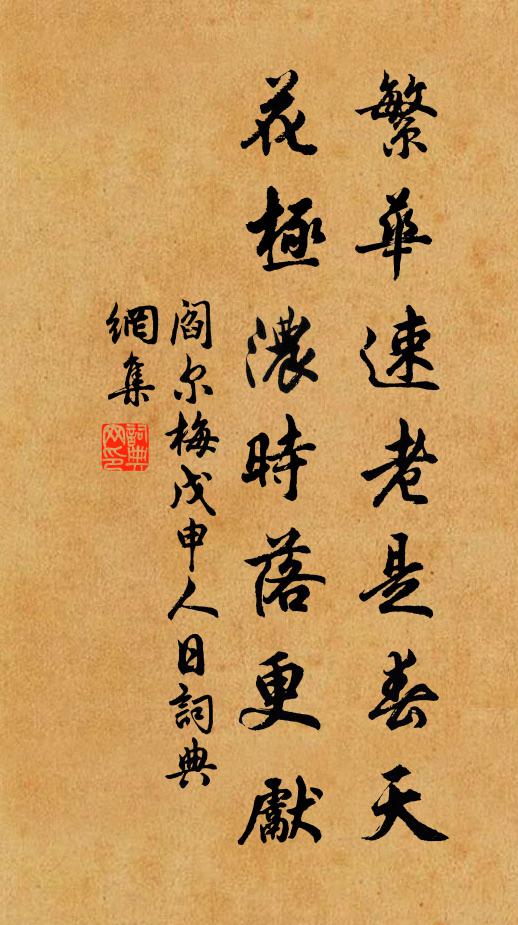 繁華速老是春天
花極濃時落更獻
閻尔梅戊申人日詞典
網集
詞典網印